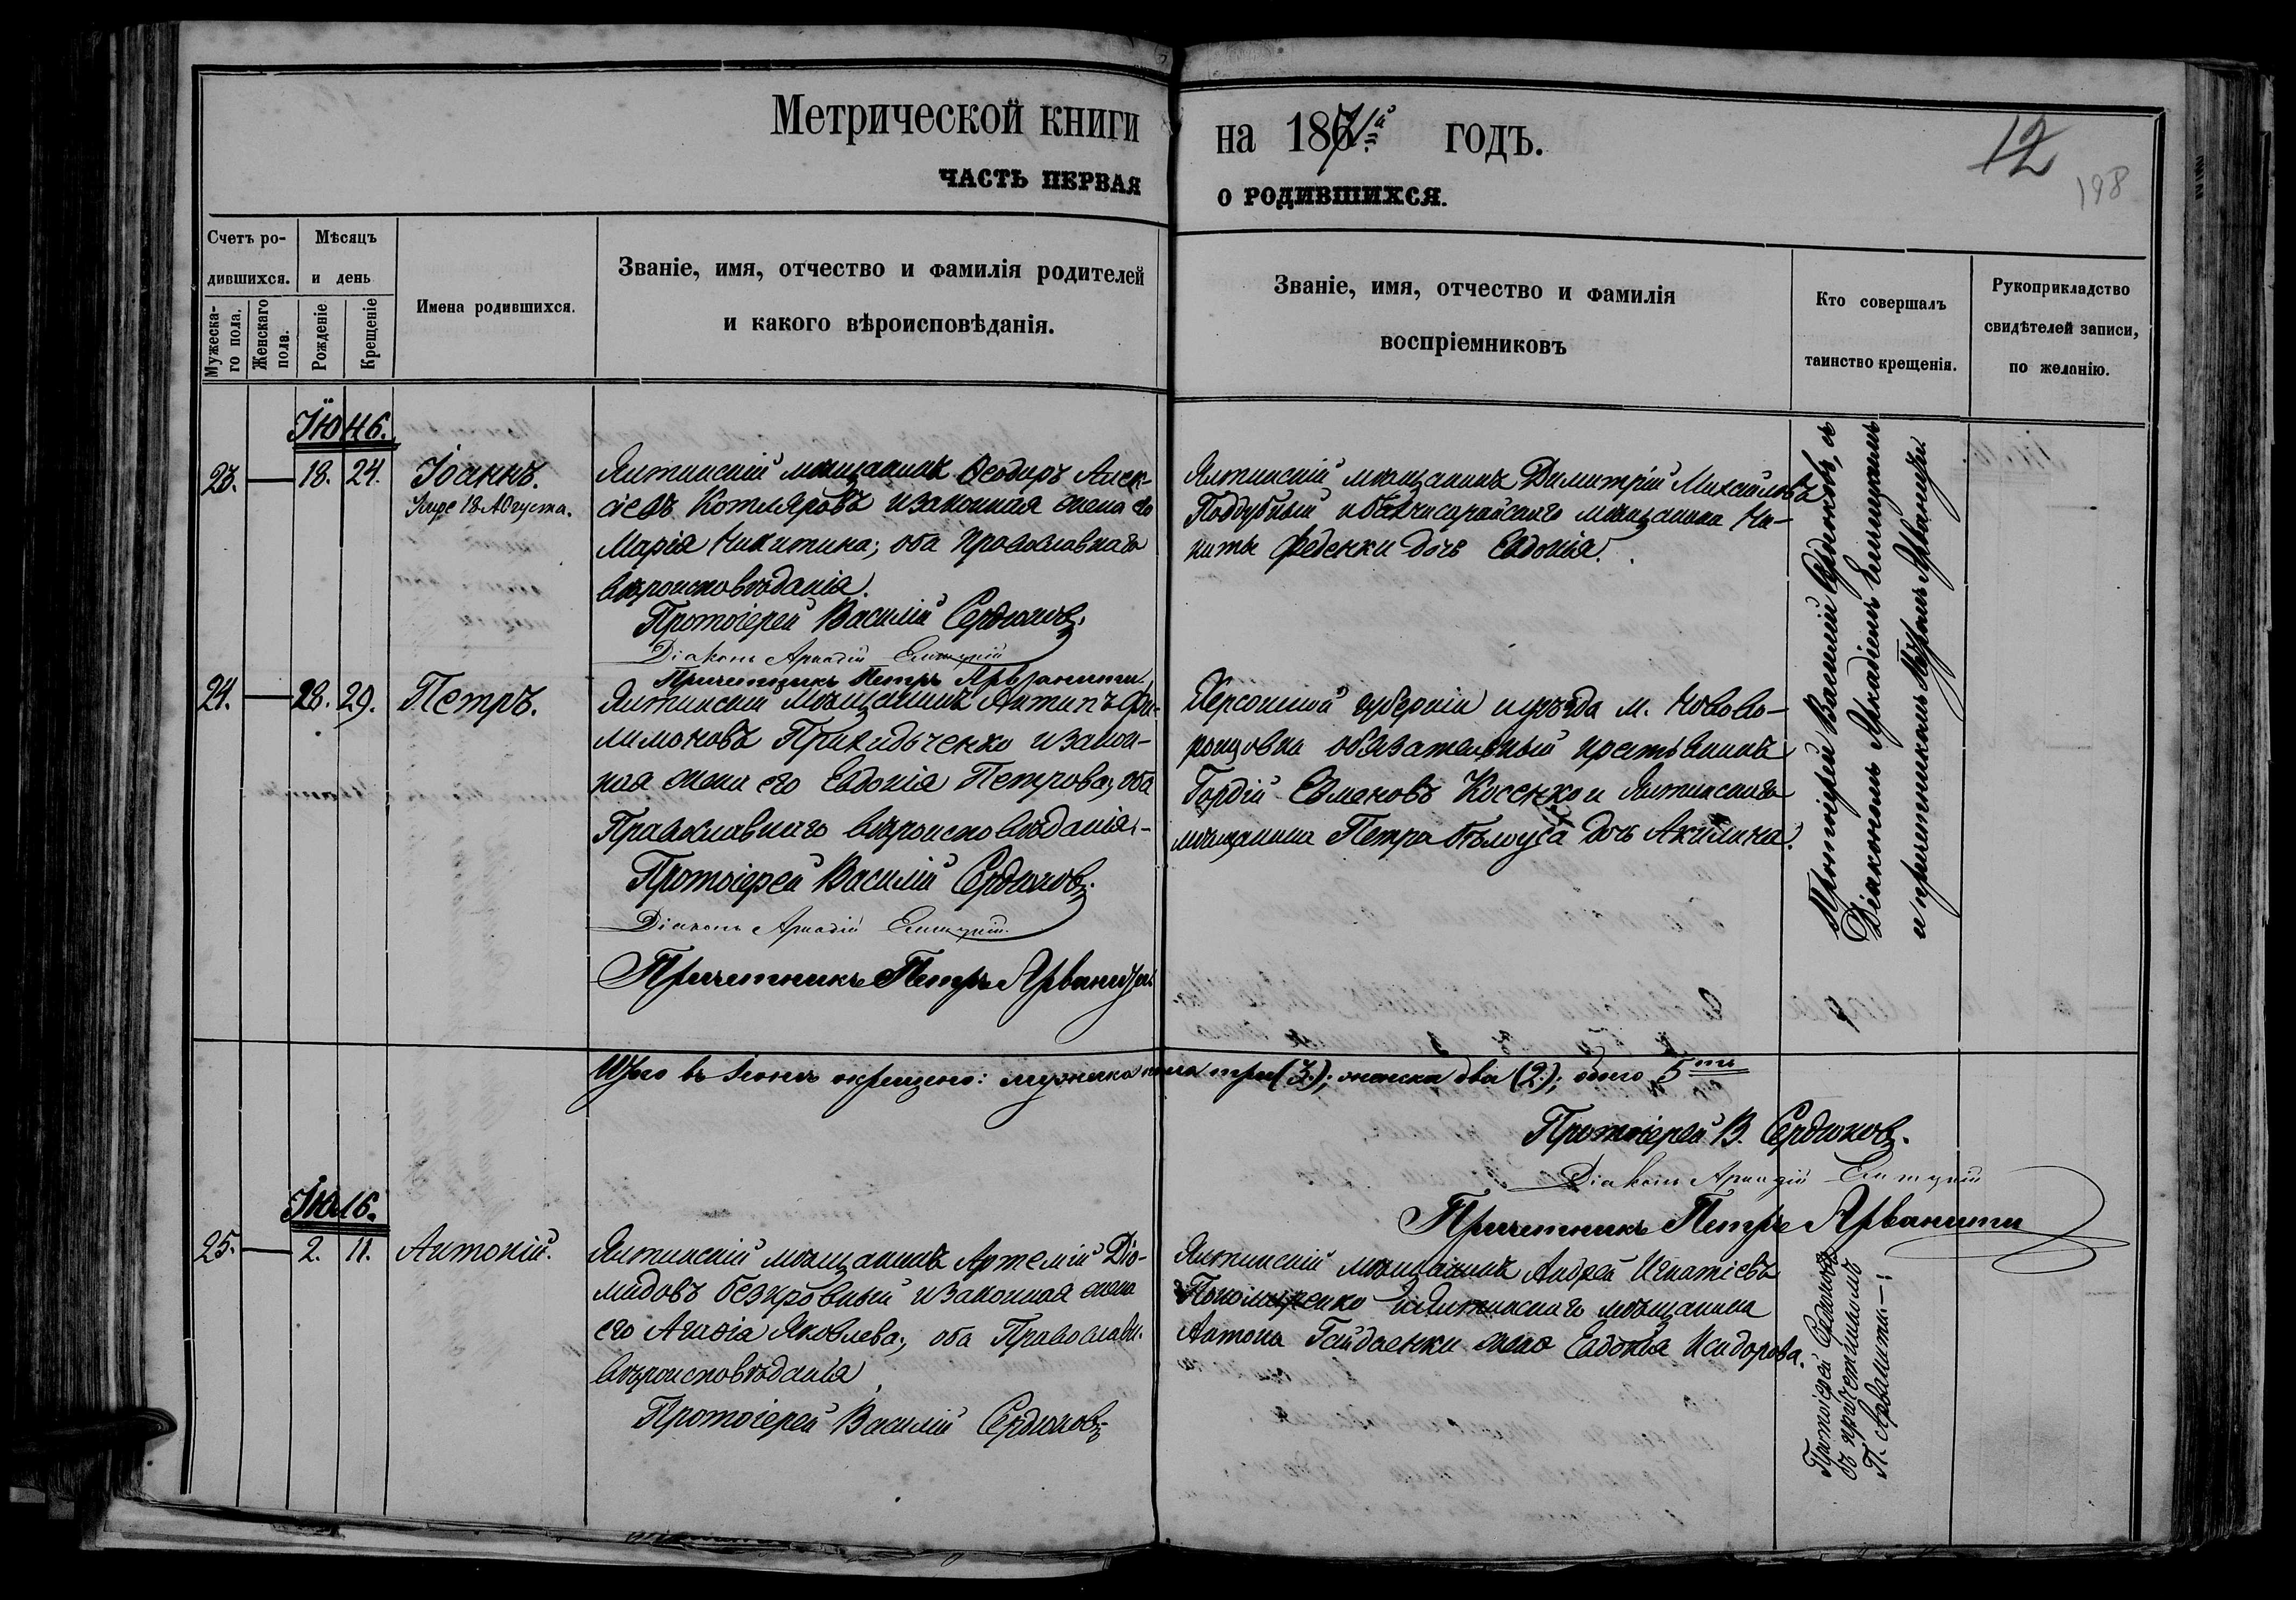 Метрической книги на 1871й годъ.
12
198
ЧАСТЬ ПЕРВАЯ О РОДИВШИХСЯ.
Счетъ ро-
дившихся.
Мужеска-
го пола.
Женскаго
пола.
Мѣсяцъ
и день
Рожденіе
Крещеніе
Имена родившихся.
Званіе, имя, отчество и фамилія родителей
и какого вѣроисповѣданія.
Званіе, имя, отчество и фамилія
воспріемниковъ
Кто совершалъ
таинство крещенія.
Рукоприкладство
свидѣтелей записи,
по желанію.
Іюнь.
23. — 18. 24. Іоаннъ.
18 Августа.
Ялтинскій мѣщанинъ Ѳеодоръ Алек-
сѣевъ Котляровъ и законная жена его
Марія Никитина; оба православнаго
вѣроисповѣданія.
Протоіерей Василій Сердюковъ.
Діаконъ Аркадій
Причетникъ Петръ Арванити
Ялтинскій мѣщанинъ Димитрій Михайловъ
Поддубный и бахчисарайскаго мѣщанина Ни-
киты Феденки дочь Евдокія.
Протоіерей Василій Сердюковъ, съ
Діакономъ Аркадіемъ
и причетникомъ Петромъ Арванити.
24. — 28. 29. Петръ.
Ялтинскій мѣщанинъ Антипъ Фи-
лимоновъ Прихидьченко и закон-
ная жена его Евдокія Петрова; оба
Православнаго вѣроисповѣданія.-
Протоіерей Василій Сердюковъ.
Діаконъ Аркадій
Причетникъ Петръ Арванити
Херсонской губерніи и уѣзда м. Нововo-
ронцовки обязательный крестьянинъ
Гордій Евменовъ Косенко и Ялтинскаго
мѣщанина Петра Бѣлоуса дочь Акилина.
Итого въ Іюнѣ окрещено: мужеска пола три (3.); женска два (2.); обоего 5ть
Протоіерей В. Сердюковъ.
Діаконъ Аркадій
Причетникъ Петръ Арванити
Іюль.
25. — 2. 11. Антоній.
Ялтинскій мѣщанинъ Артемій Діо-
мидовъ Безкровный и законная жена
его Агафія Яковлева; оба Православн.
вѣроисповѣданія
Протоіерей Василій Сердюковъ
Ялтинскій мѣщанинъ Андрей Игнатіевъ
и Ялтинскаго мѣщанина
Антона Гайдаенки жена Евдокія Исидорова.
Протоіерей Сердюковъ
съ причетникомъ
П. Арванити.—